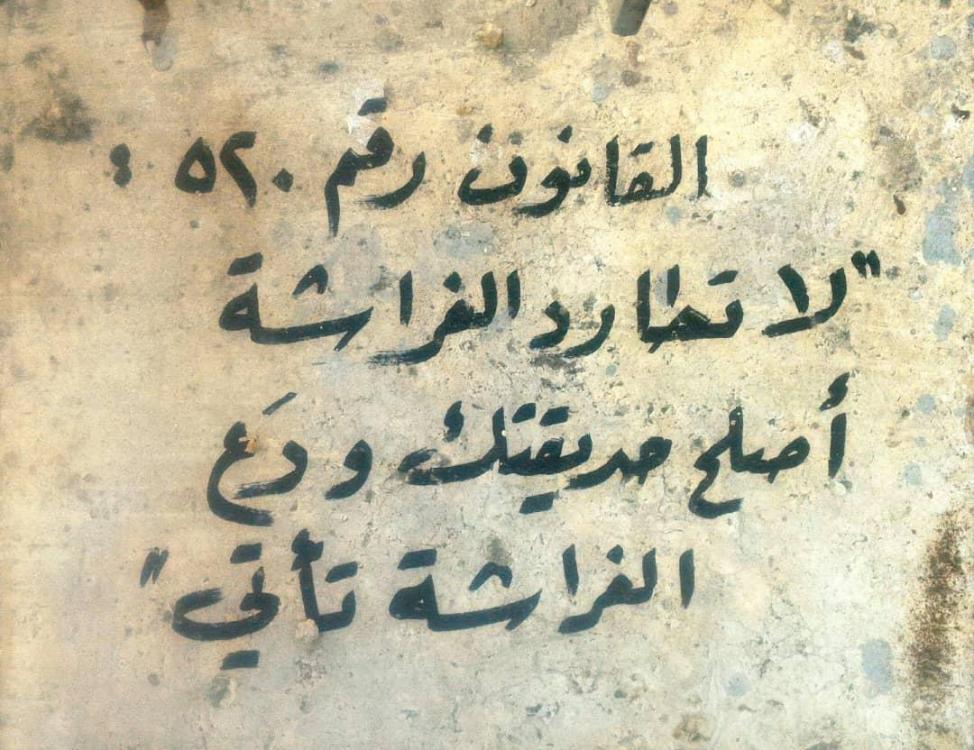 القانون رقم ٥٢٠ :
"لا تطارد الفراشة
أصلح حديقتك و دَع
الفراشة تأتي"